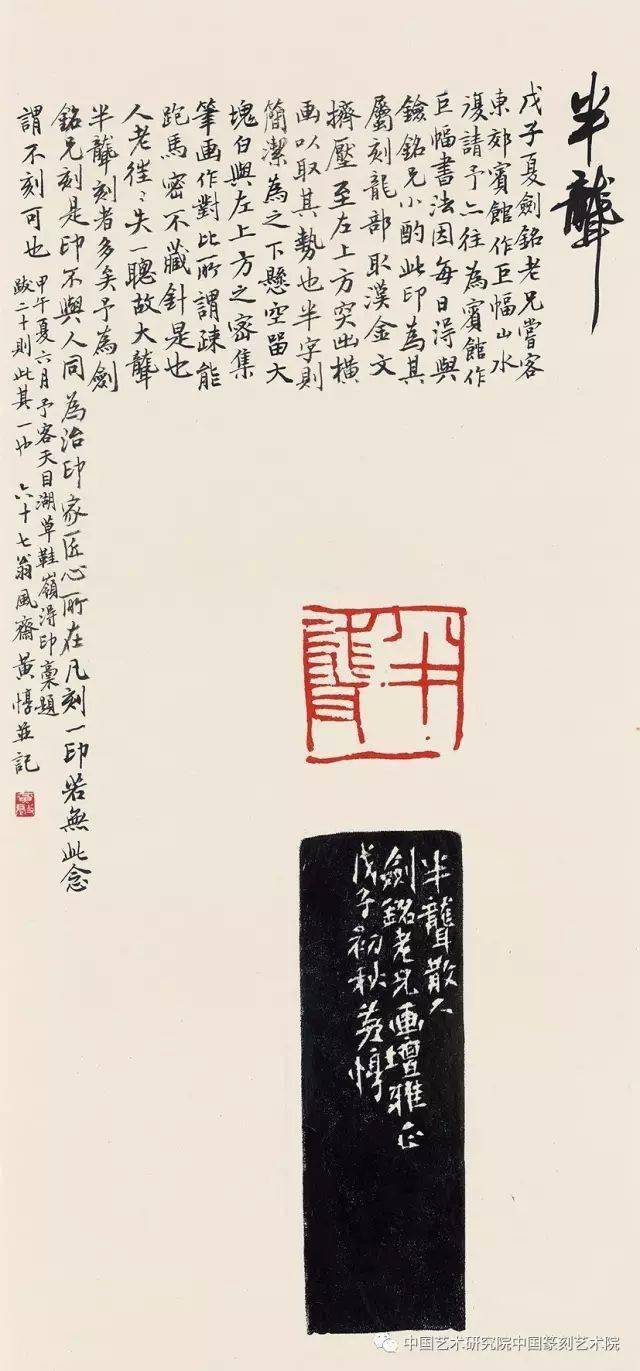 半聾
戊子夏劍銘老兄嘗客
東郊賓館作巨幅山水
復請予亦往為賓館作
巨幅書法因每日得與
劍銘兄小酌此印為其
屬刻龍部取漢金文
擠壓至左上方突出橫
画以取其勢也半字則
簡潔為之下懸空留大
塊白與左上方之密集
筆画作對比所謂疎能
跑馬密不藏針是也
人老往々失一聰故大聾
半聾刻者多矣予為劍
銘兄刻是印不與人同為治印家匠心所在凡刻一印若無此念
謂不刻可也
甲午夏六月予客天目湖草鞋嶺得印稾題
跋二十則此其一也 六十七翁風齋黃惇並記
半聾
半聾散人
劍銘老兄画壇雅正
戊子初秋黃惇
中国艺术研究院中国篆刻艺术院